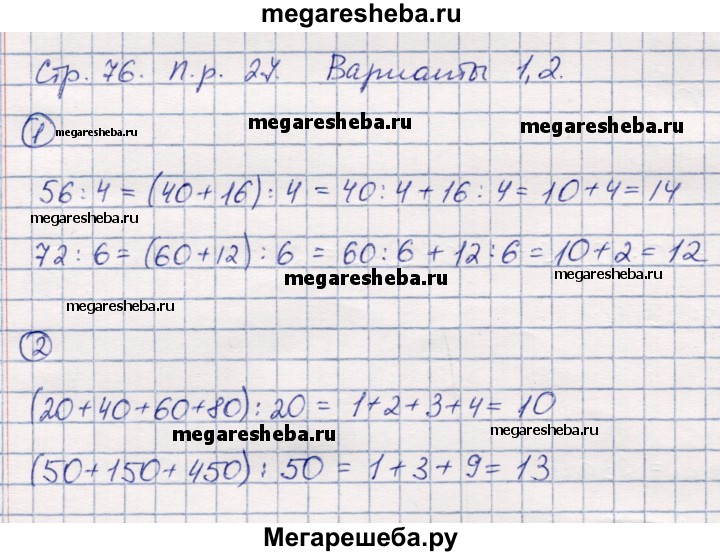 megaresheba.ru
Стр. 76. П.р. 27. Варианты 1,2.
1 megaresheba.ru megaresheba.ru
56 : 4 = (40 + 16) : 4 = 40 : 4 + 16 : 4 = 10 + 4 = 14
megaresheba.ru
72 : 6 = (60 + 12) : 6 = 60 : 6 + 12 : 6 = 10 + 2 = 12
megaresheba.ru megaresheba.ru
megaresheba.ru
2
(20 + 40 + 60 + 80) : 20 = 1 + 2 + 3 + 4 = 10
megaresheba.ru megaresheba.ru
(50 + 150 + 450) : 50 = 1 + 3 + 9 = 13
Мегарешеба.ру